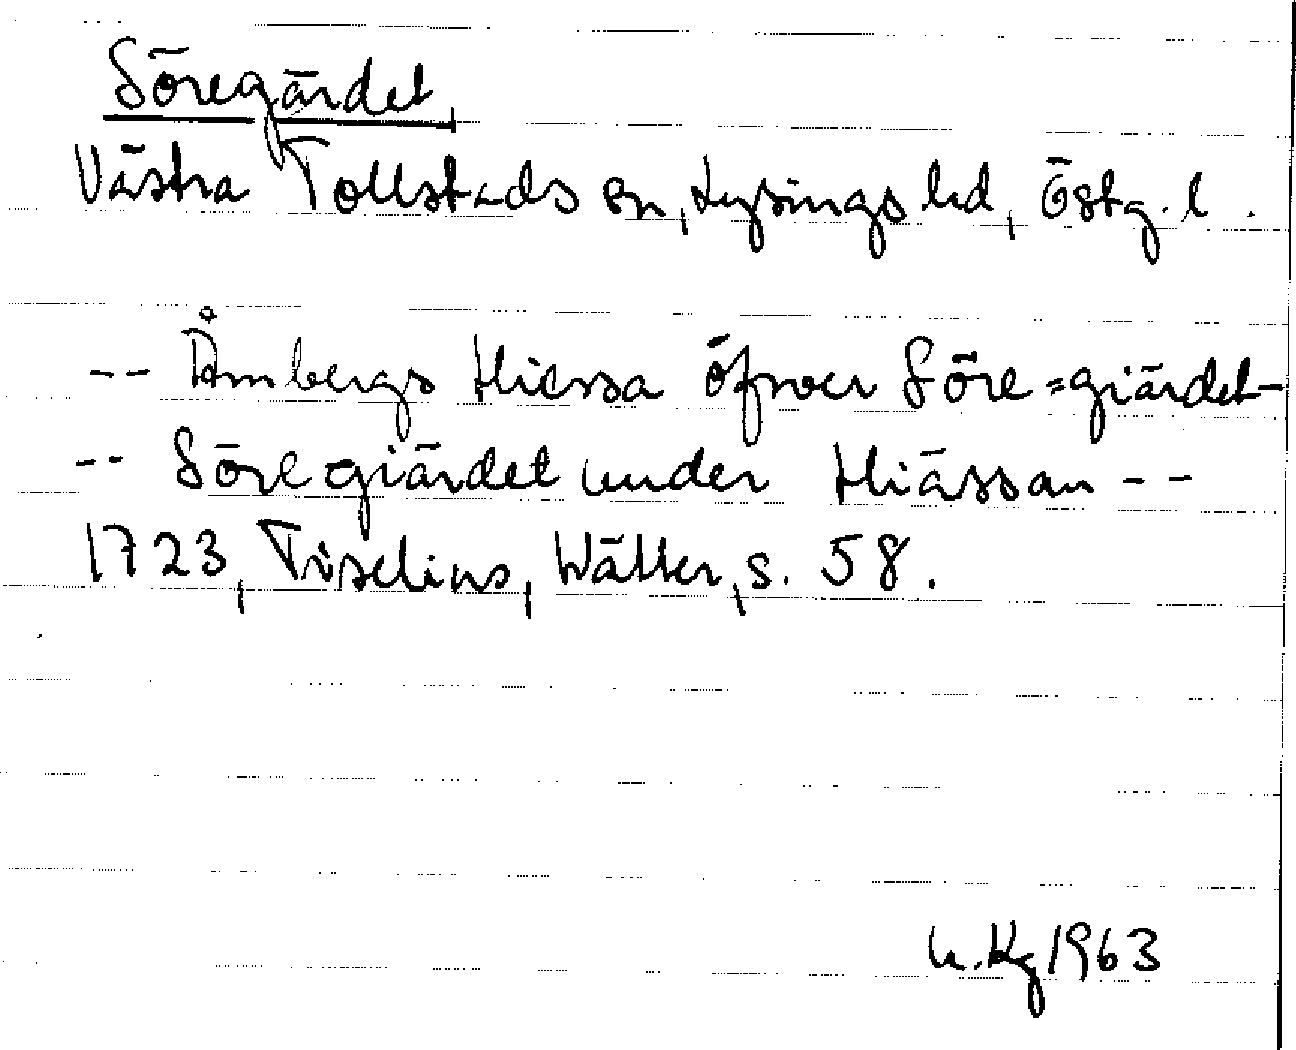 Söregärdet,
Västra Tollstads sn, Lysings hd, Östg. l.
-- Åmbergs Hiessa öfwer Söre=giärdet-
-- Söregiärdet under Hiässan --
1723, Tiselius, Wätter, s. 58.
Kg 1963